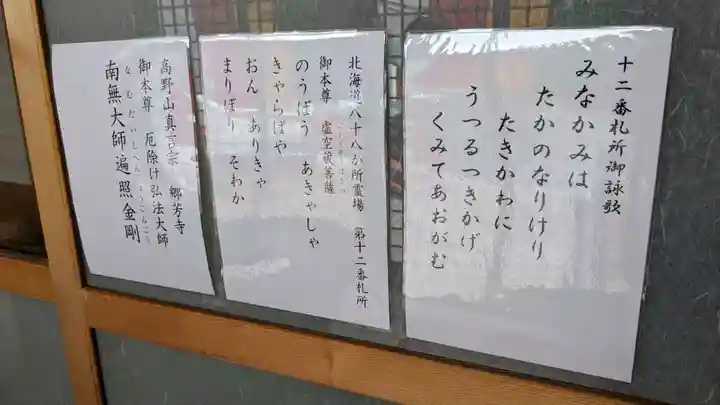 十二番札所御詠歌
みなかみは
たかのなりけり
たきかわに
うつるつきかげ
くみてあおがむ
北海道八十八か所霊場 第十二番札所
御本尊 虚空蔵菩薩
のうぼう あきゃしゃ
きゃらばや
おん ありきゃ
まりぼり そわか
高野山真言宗 郷芳寺
御本尊 厄除け弘法大師
南無大師遍照金剛